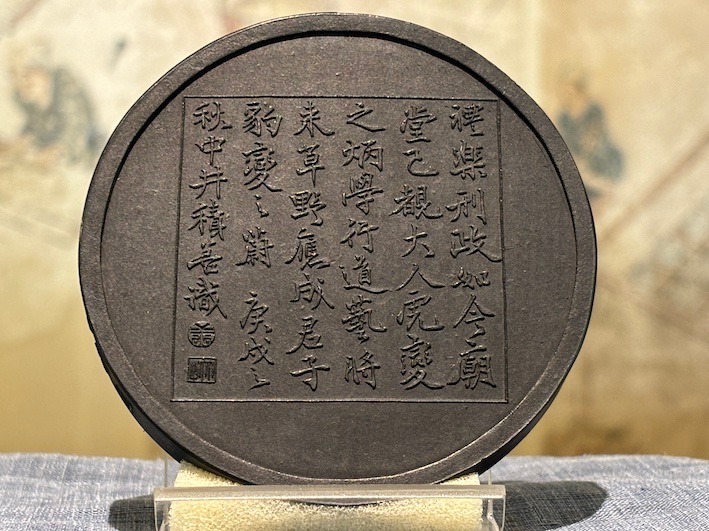 禮樂刑政如今廟
堂已覩大人虎變
之炳學行道藝將
来草野應成君子
豹變之蔚 庚戌之
秋中井積善識